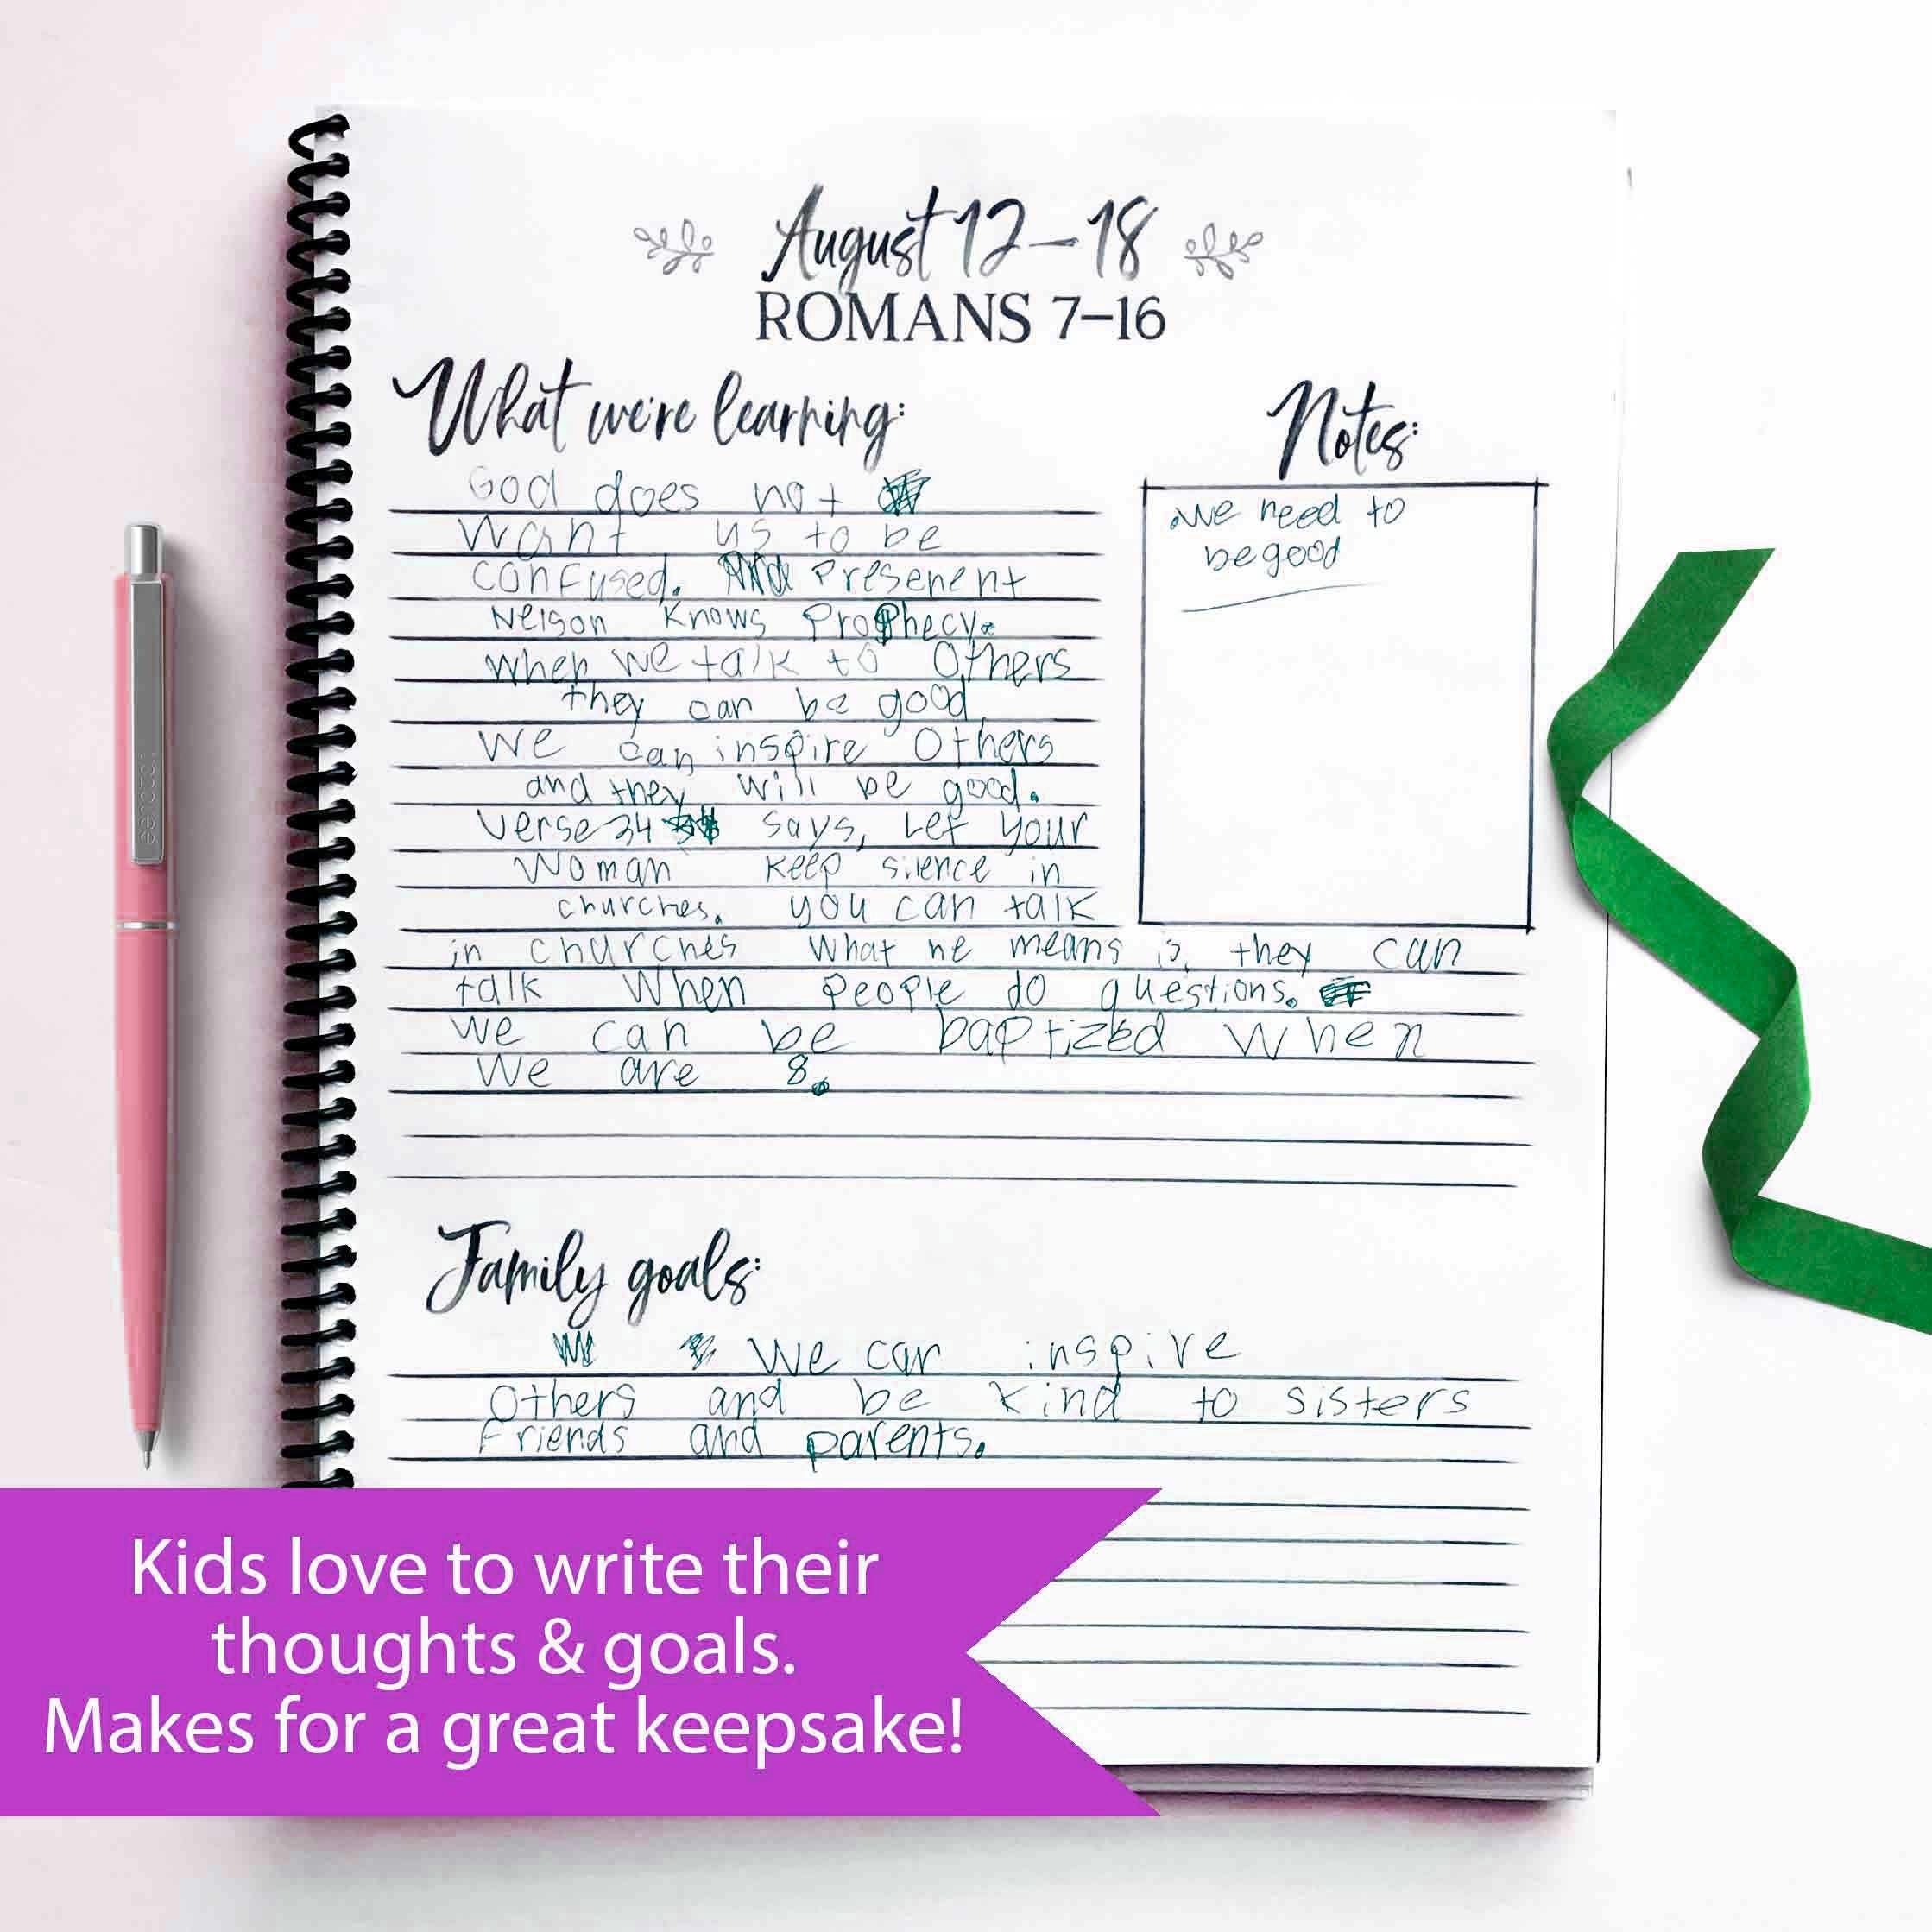 August 12–18
ROMANS 7–16
What we're learning:
God does not
want us to be
confused. And Presenent
Nelson Knows Prophecy.
when we talk to Others
they can be good
We can inspire Others
and they will be good.
Verse 34 says, Let your
Woman keep silence in
churches. you can talk
in churches What he means is, they can
talk When People do questions.
We can be baptized When
We are 8.
Notes:
We need to
be good
Family goals:
We can inspire
Others and be kind to sisters
Friends and parents.
Kids love to write their
thoughts & goals.
Makes for a great keepsake!